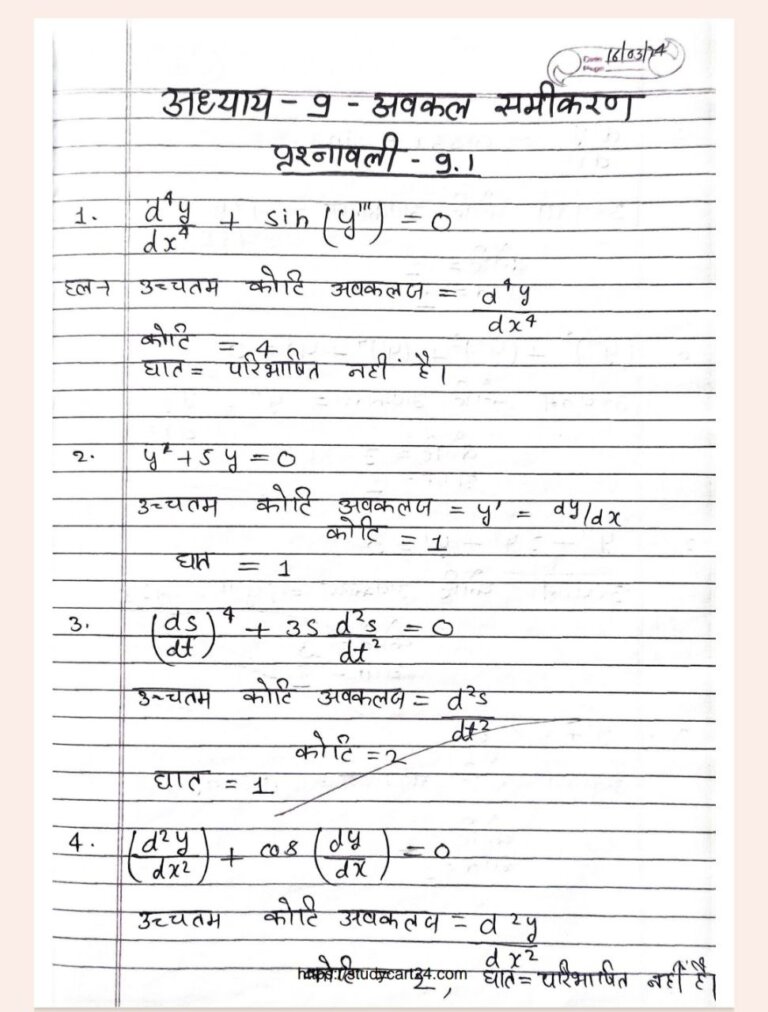 Date 16/03/24
Page
अध्याय - 9 - अवकल समीकरण
प्रश्नावली - 9.1
1. d⁴y/dx⁴ + sin (y''') = 0
हल→ उच्चतम कोटि अवकलज = d⁴y/dx⁴
कोटि = 4
घात = परिभाषित नहीं है।
2. y² + 5y = 0
उच्चतम कोटि अवकलज = y' = dy/dx
कोटि = 1
घात = 1
3. (ds/dt)⁴ + 3s d²s/dt² = 0
उच्चतम कोटि अवकलज = d²s/dt²
कोटि = 2
घात = 1
4. (d²y/dx²) + cos (dy/dx) = 0
उच्चतम कोटि अवकलज = d²y/dx²
कोटि 2, घात = परिभाषित नहीं है।
studycart24.com